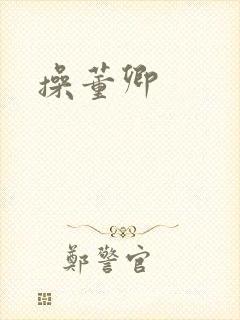 操董卿
鄭警官